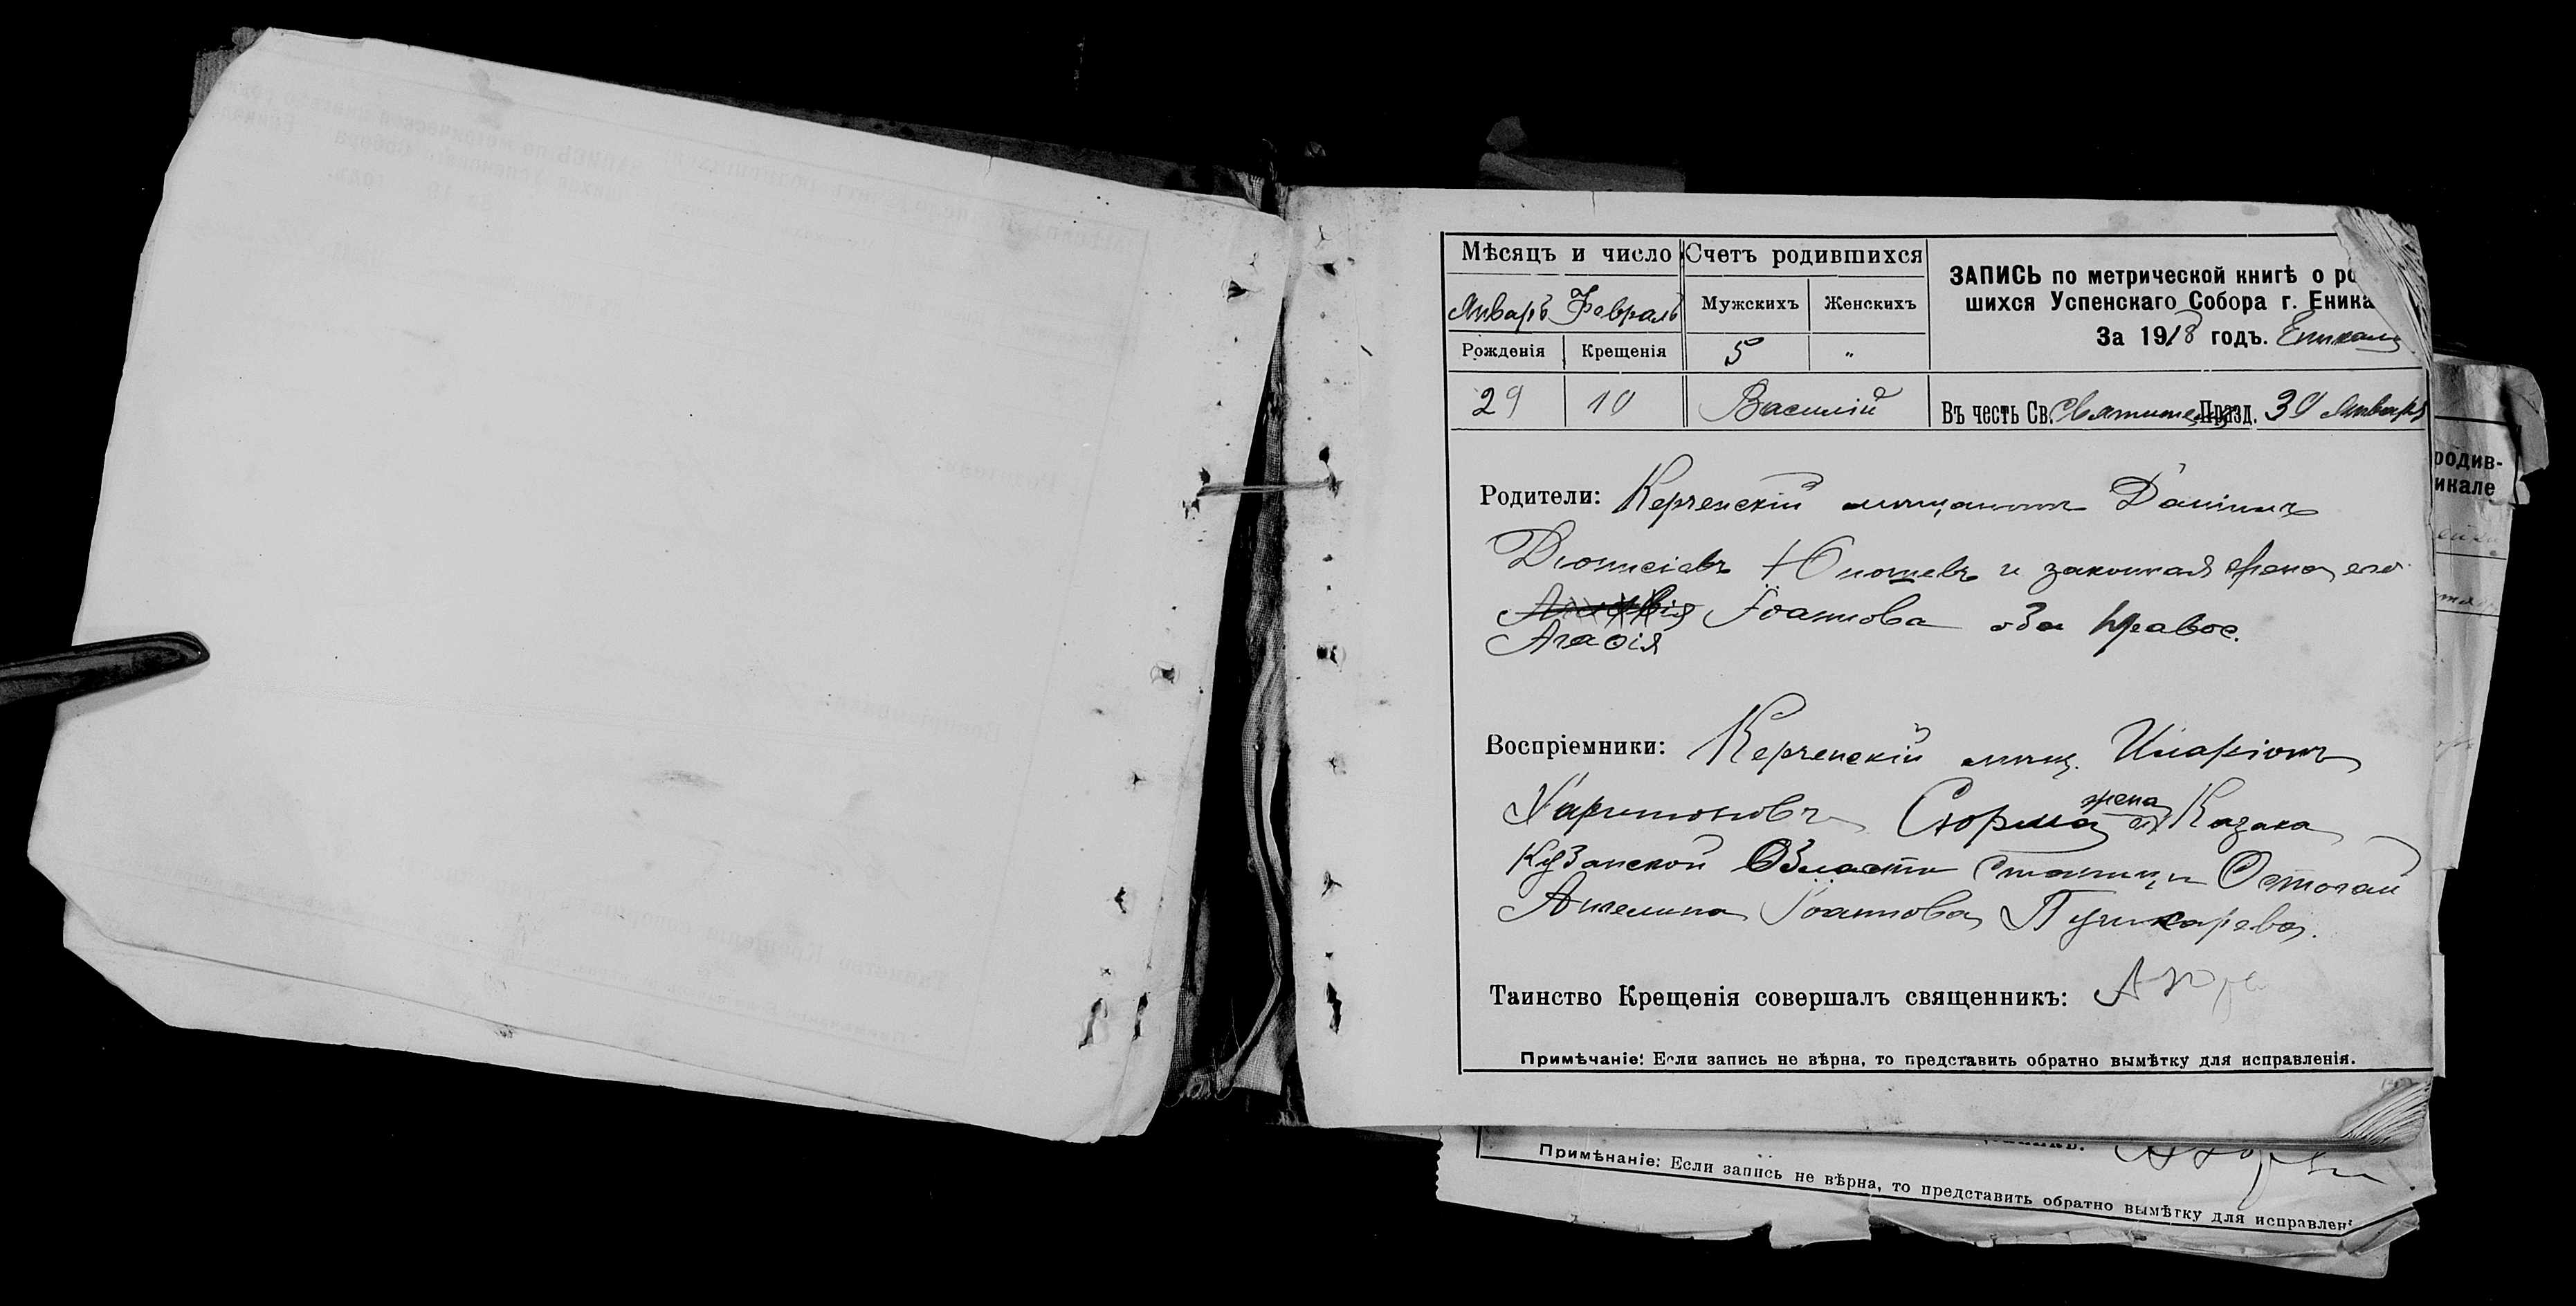 Мѣсяцъ и число Счетъ родившихся
ЗАПИСЬ по метрической книгѣ о ро
шихся Успенскаго Собора г. Еника
За 1918 годъ. Еникале
Январь Февраль Мужскихъ Женскихъ
Рожденія Крещенія 5 „
29 10 Василій Въ честь Св. Святителя Празд. 30 Января
Родители: Керченскій мѣщанинъ Даніилъ
Діонисіевъ и законная жена его
Іоаннова оба правос.
Агафія
Воспріемники: Керченскій мѣщ. Иларіонъ
Харитоновъ жена Казака
Кубанской Области станицы
Ангелина Іоаннова Пушкарева.
Таинство Крещенія совершалъ священникъ:
Примѣчаніе: Если запись не вѣрна, то представить обратно вымѣтку для исправленія.
родив-
икале
Примѣнаніе: Если запись не вѣрна, то представить обратно вымѣтку для исправлен